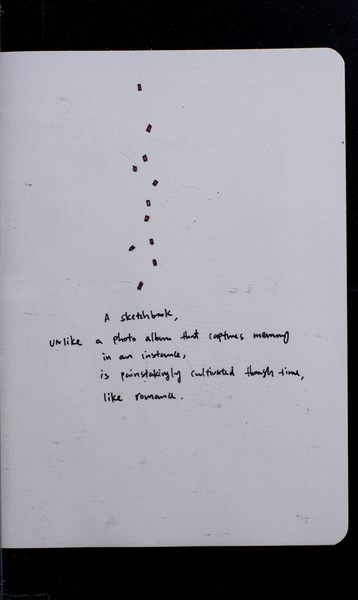 A sketchbook,
UNlike a photo album that captures memory
in an instance,
is painstakingly cultivated though time,
like romance.